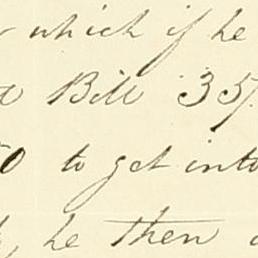 which if he
Bill 35
0 to get into
he then